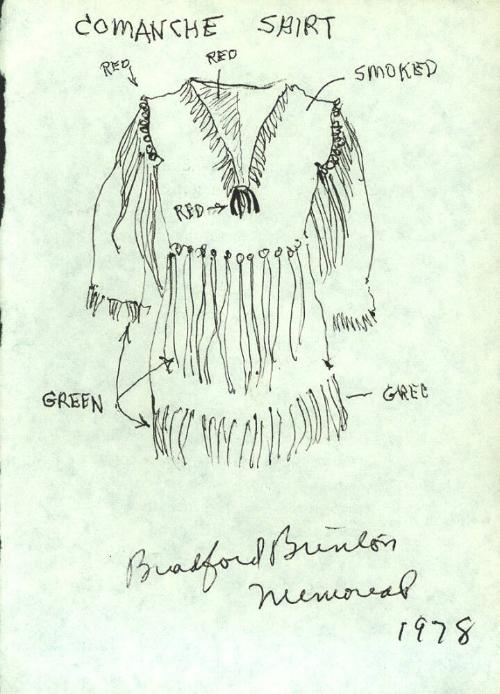 COMANCHE SHIRT
RED
RED
SMOKED
RED
GREEN
GREE
Bradford Brinton
Memorial
1978